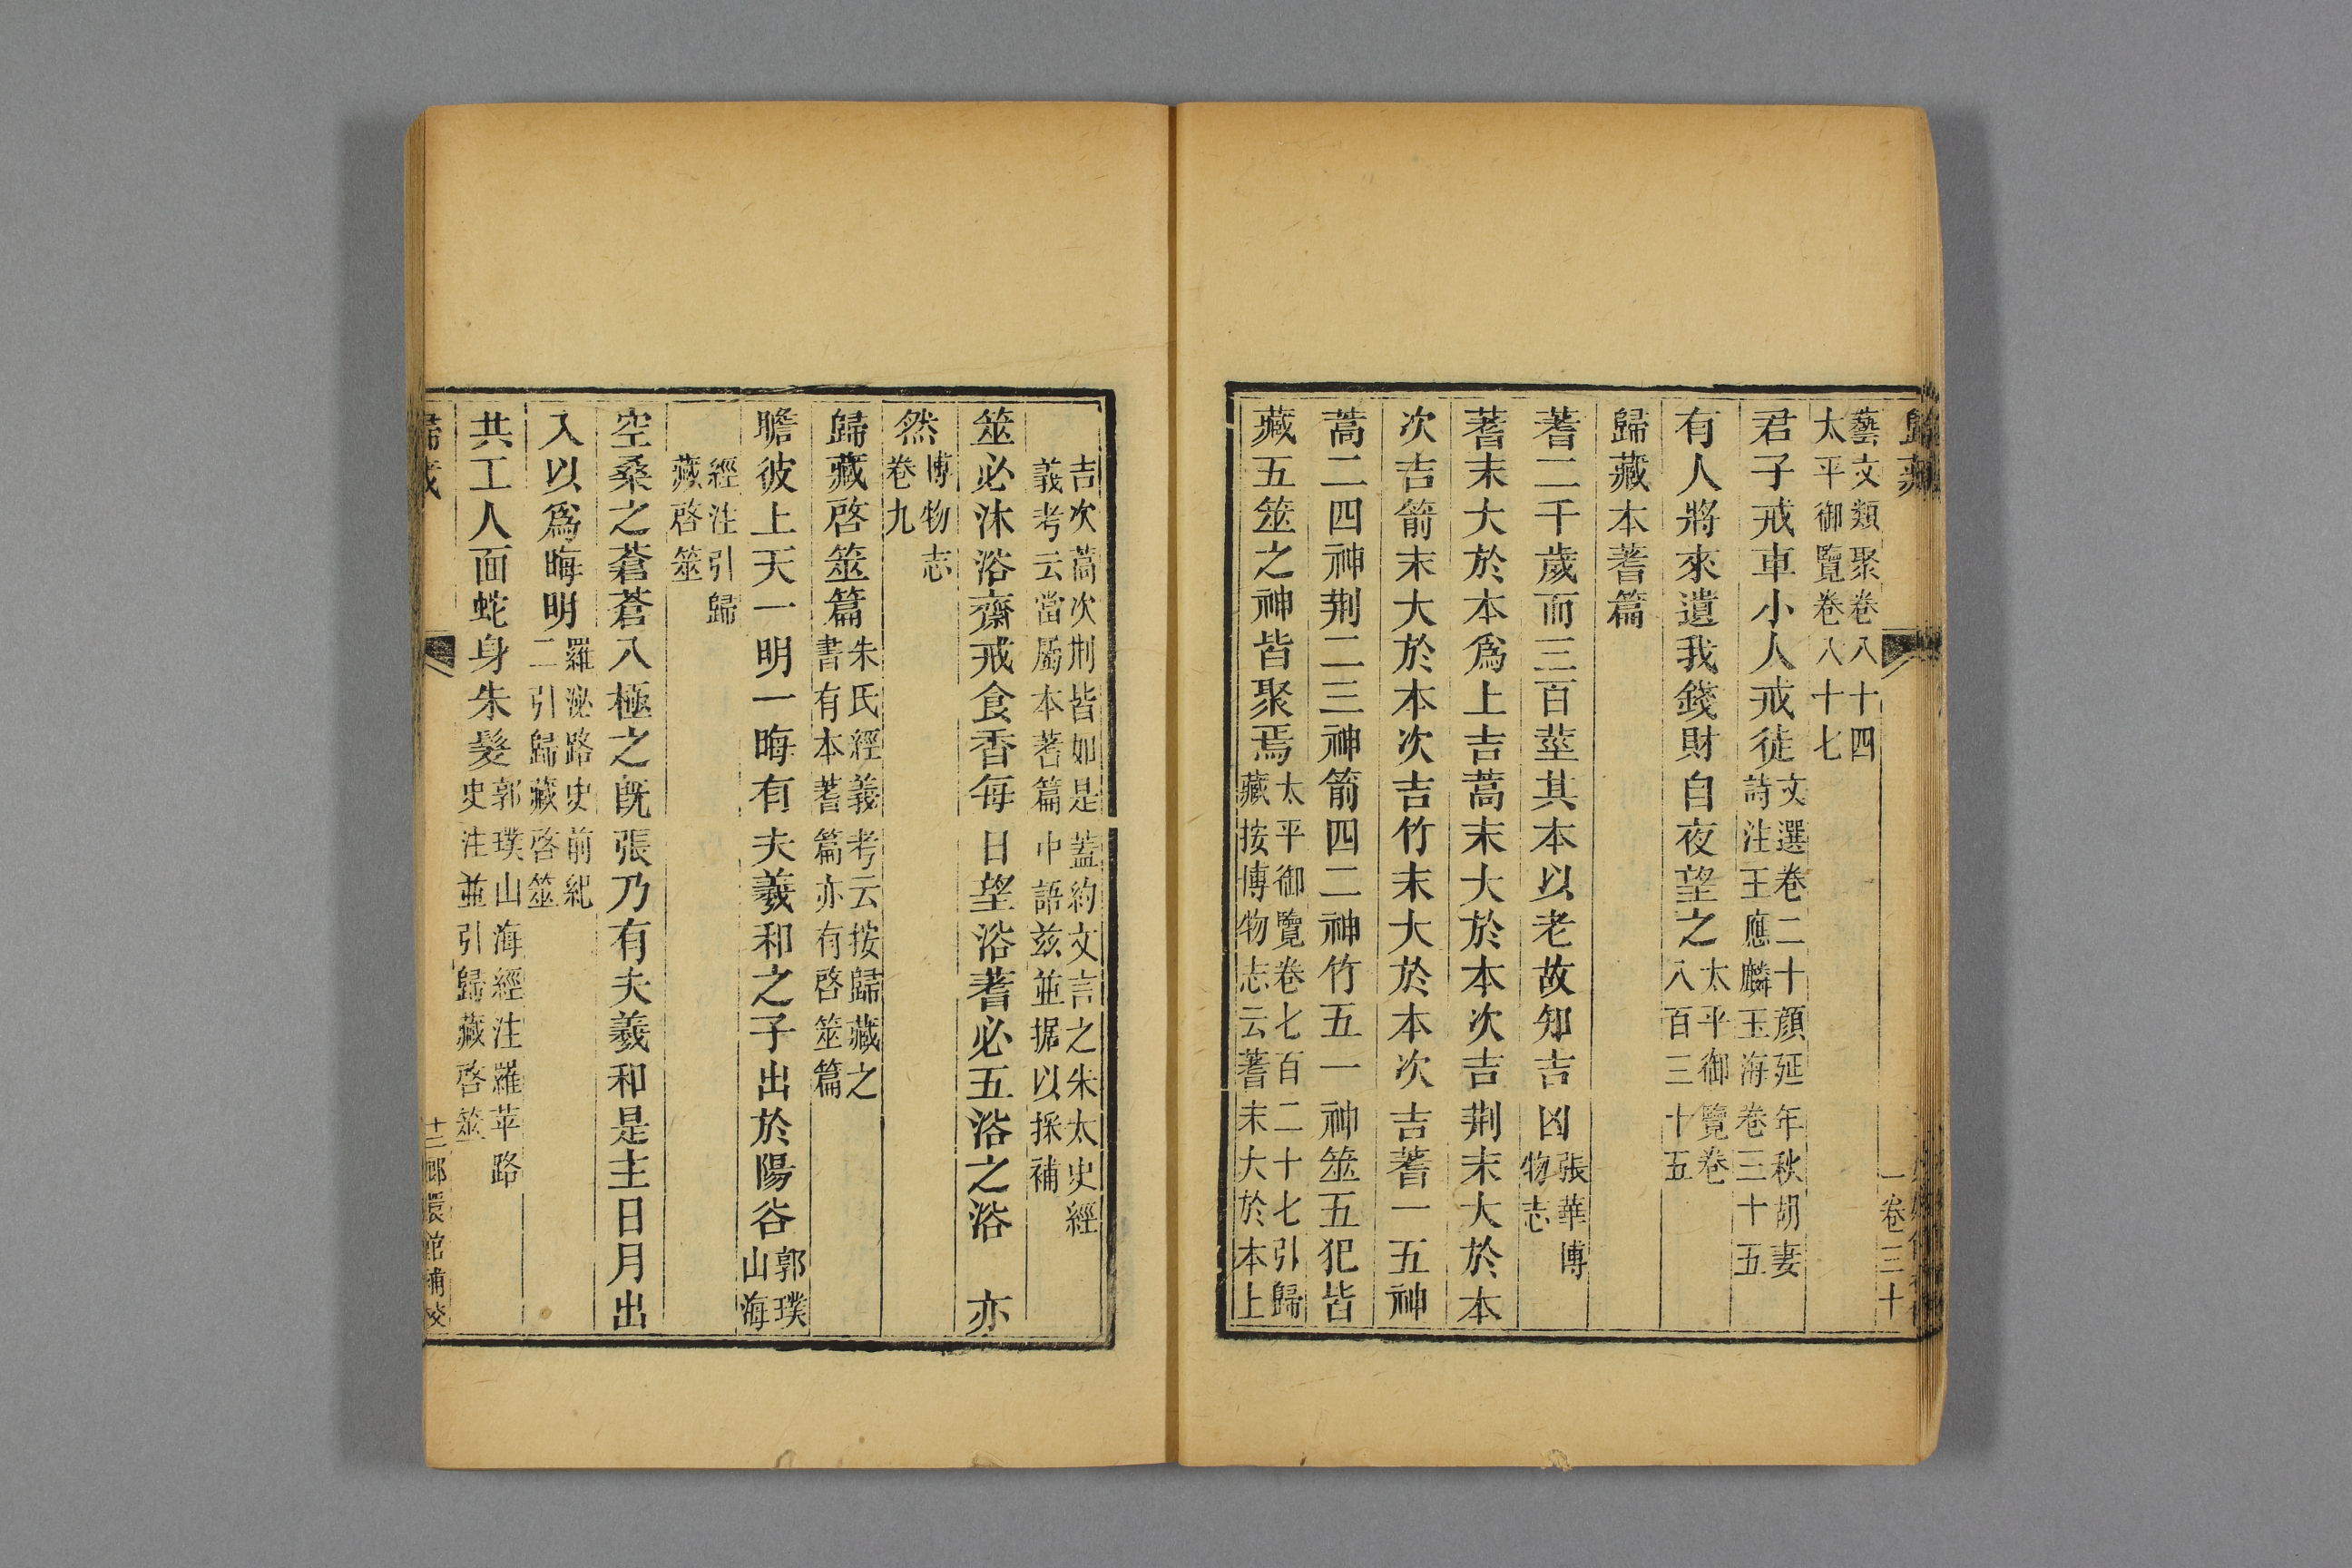 歸藏
一卷三十
藝文類聚卷八十四
太平御覽卷八十七
君子戒車小人戒徒文選卷二十顏延年秋胡妻詩注王應麟玉海卷三十五
有人將來遺我錢財自夜望之太平御覽卷八百三十五
歸藏本蓍篇
蓍二千歲而三百莖其本以老故知吉凶張華博物志
蓍末大於本爲上吉蒿末大於本次吉荆末大於本
次吉箭末大於本次吉竹末大於本次吉蓍一五神
蒿二四神荆二三神箭四二神竹五一神筮五犯皆
藏五筮之神皆聚焉太平御覽卷七百二十七引歸藏按博物志云蓍末大於本上
吉次蒿次荆皆如是蓋約文言之朱太史經義考云當屬本蓍篇中語兹並据以採補
筮必沐浴齋戒食香每日望浴蓍必五浴之浴 亦
然博物志卷九
歸藏啓筮篇朱氏經義考云按歸藏之書有本蓍篇亦有啓筮篇
瞻彼上天一明一晦有夫羲和之子出於陽谷郭璞山海
經注引歸藏啓筮
空桑之蒼蒼八極之旣張乃有夫羲和是主日月出
入以爲晦明羅泌路史前紀二引歸藏啓筮
共工人面蛇身朱髮郭璞山海經注羅苹路史注並引歸藏啓筮
十二
嫏嬛館補校